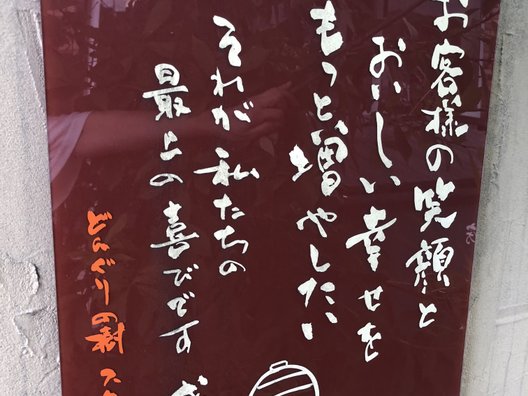 お客様の笑顔と
おいしい幸せを
もっと、増やしたい
それが私たちの
最上の喜びです
どんぐりの樹 スタ